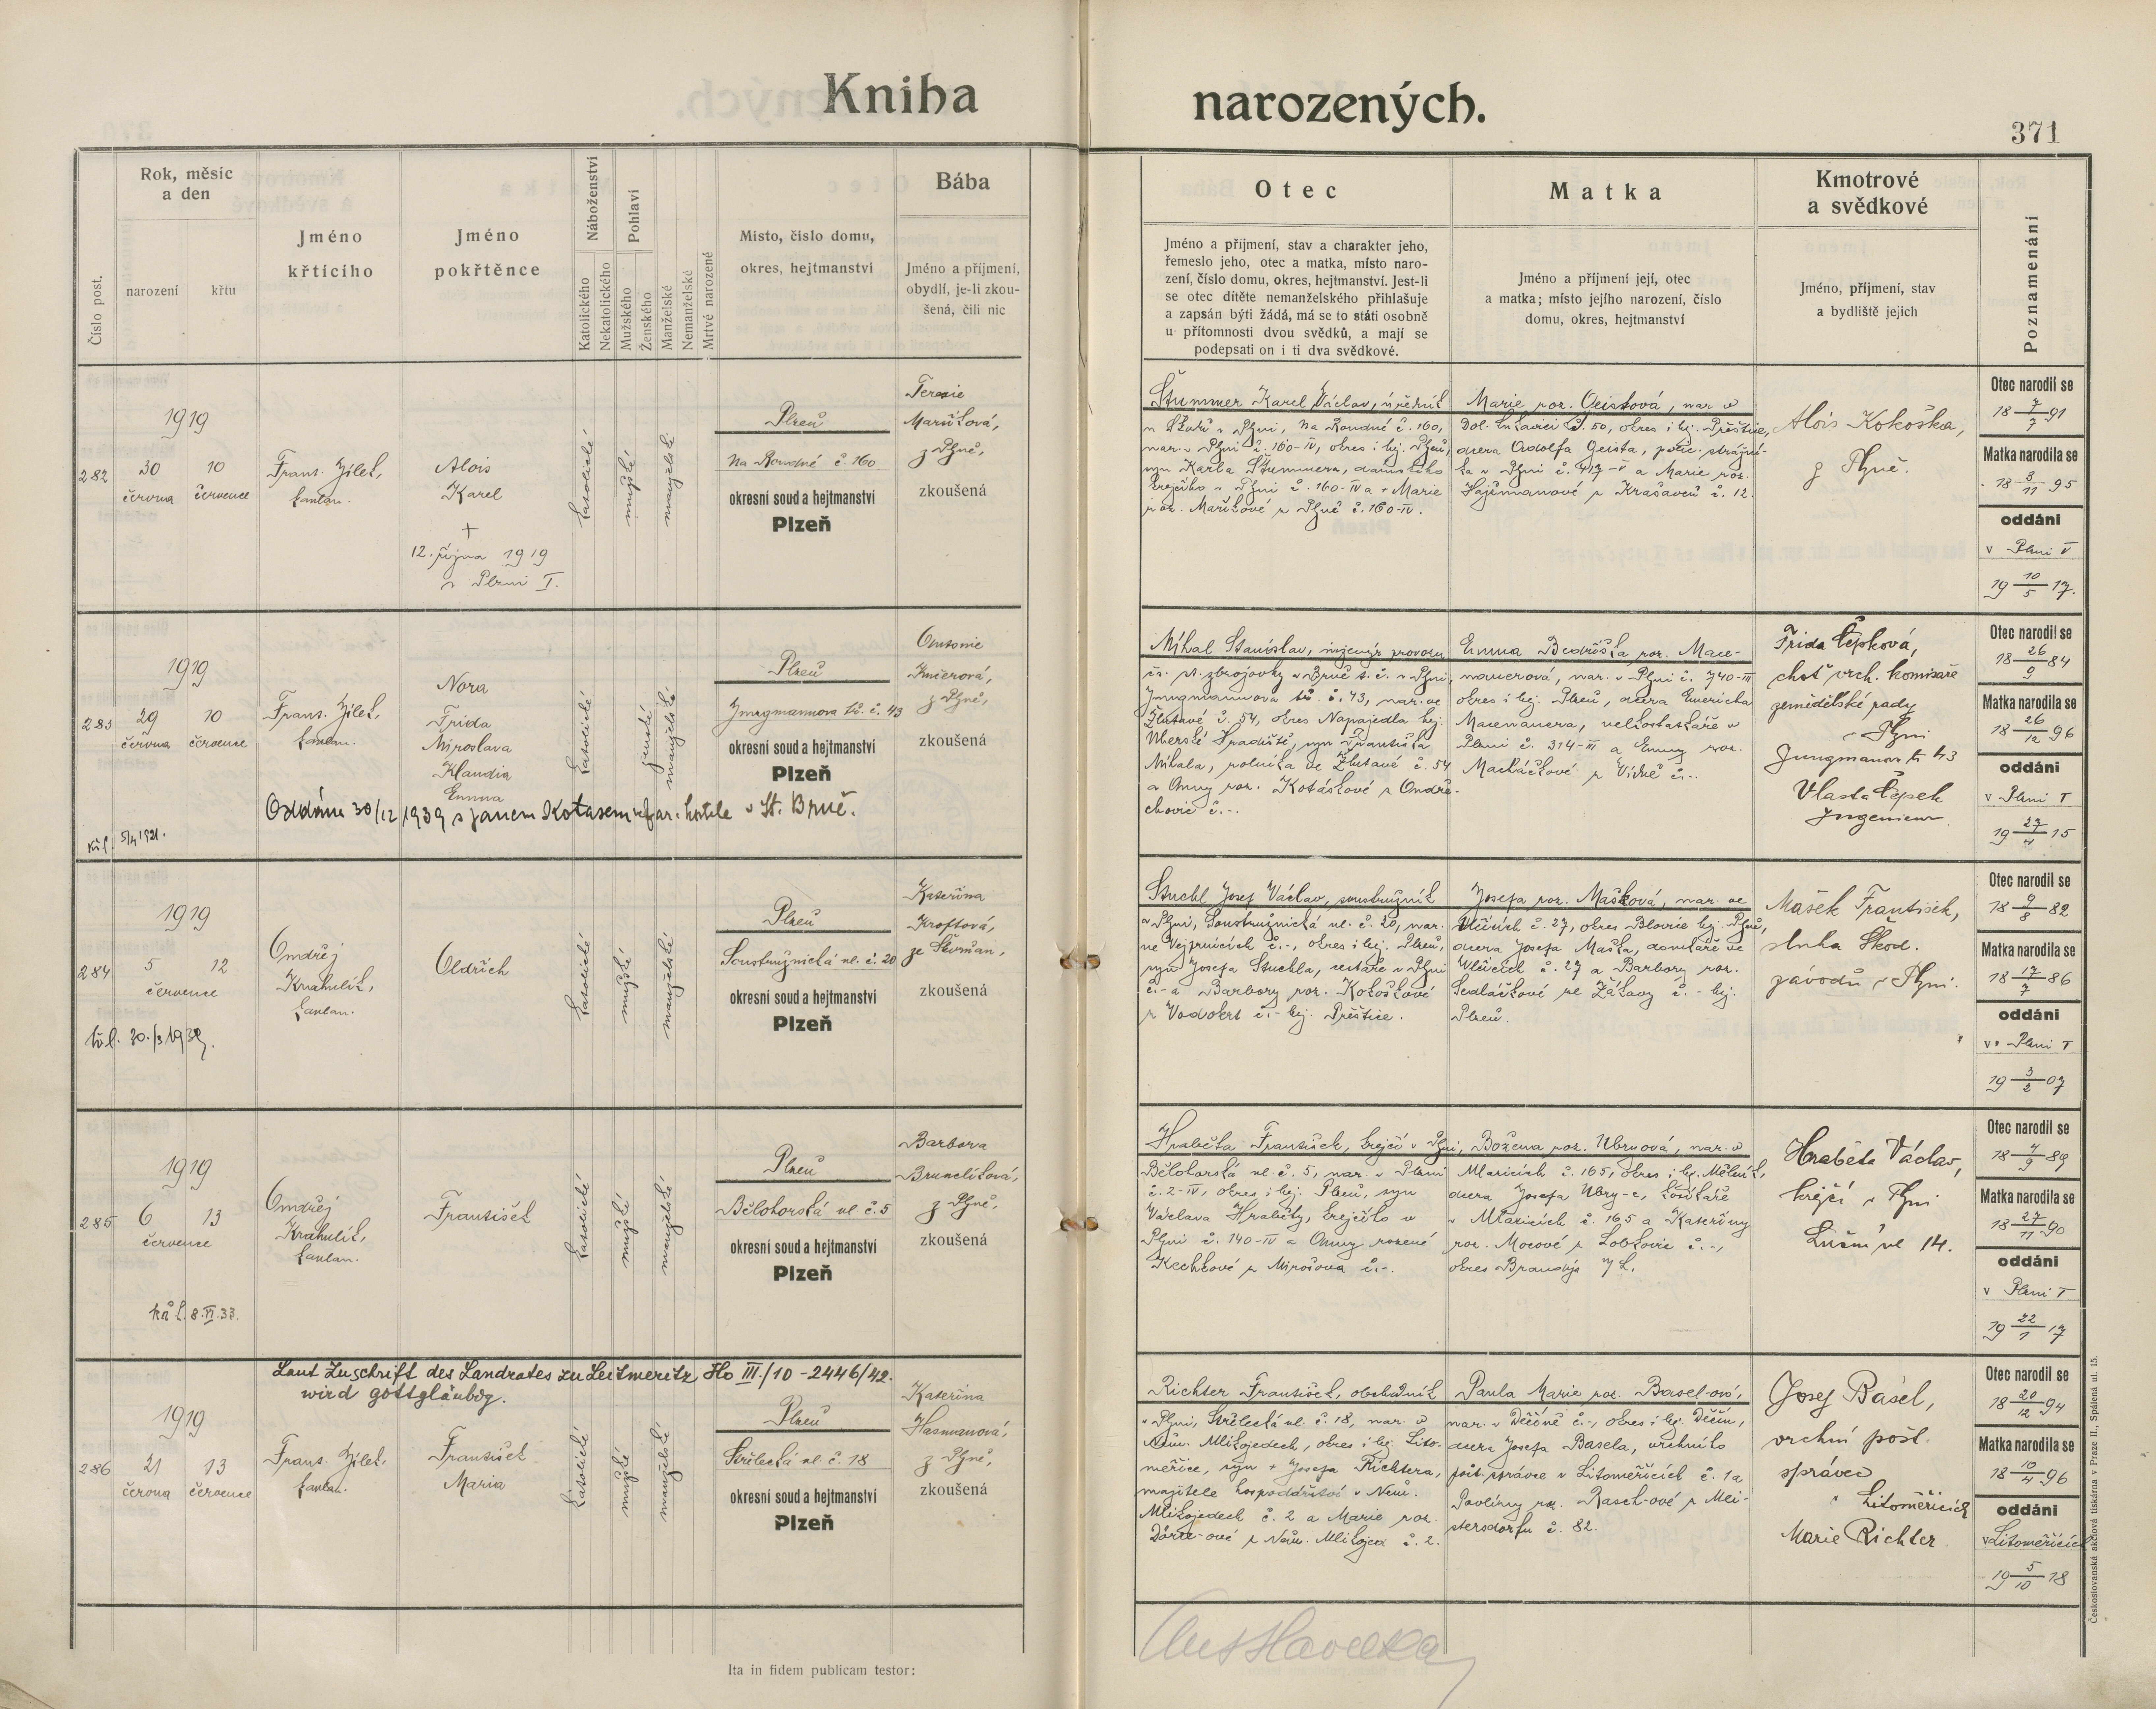 Kniha narozených.
371
Číslo post.
Rok, měsíc
a den
narození
křtu
Jméno
křtícího
Jméno
pokřtěnce
Náboženství
Katolického
Nekatolického
Pohlaví
Mužského
Ženského
Manželské
Nemanželské
Mrtvé narozené
Místo, číslo domu,
okres, hejtmanství
Bába
Jméno a příjmení,
obydlí, je-li zkou-
šená, čili nic
Otec
Jméno a příjmení, stav a charakter jeho,
řemeslo jeho, otec a matka, místo naro-
zení, číslo domu, okres, hejtmanství. Jest-li
se otec dítěte nemanželského přihlašuje
a zapsán býti žádá, má se to státi osobně
u přítomnosti dvou svědků, a mají se
podepsati on i ti dva svědkové.
Matka
Jméno a příjmení její, otec
a matka; místo jejího narození, číslo
domu, okres, hejtmanství
Kmotrové
a svědkové
Jméno, příjmení, stav
a bydliště jejich
Poznamenání
282
1919
30
června
10
července
Frant. Jílek,
kaplan.
Alois
Karel
+
12. října 1919
v Plzni I.
katolické
mužské
manželské
Plzeň
Na Roudné č. 160
okresní soud a hejtmanství
Plzeň
Terezie
Maříková,
z Plzně,
zkoušená
Štummer Karel Václav, úředník
v Plzni, Na Roudné č. 160,
nar. v Plzni č. 160-IV, okres i hej. Plzeň,
syn Karla Štummera, dámského
krejčího v Plzni č. 160-IV a Marie
roz. Maříkové z Plzně č. 160-IV.
Marie roz. Geistová, nar. v
Dol. Lukavici č. 50, okres i hej. Přeštice,
dcera Adolfa Geista, polic. strážní-
ka v Plzni č. 417-V a Marie roz.
Hajšmanové z Krašovců č. 12.
Alois Kokoška,
z Plzně.
Otec narodil se
18 7/7 91
Matka narodila se
18 3/11 95
oddáni
v Plzni V
19 10/5 17.
283
1919
29
června
10
července
Frant. Jílek,
kaplan.
Nora
Frida
Miroslava
Klaudia
Emma
Oddána 30/12 1939 s Janem Kotasem v St. Brně.
5/4 1921.
katolické
ženské
manželské
Plzeň
Jungmannova tř. č. 43
okresní soud a hejtmanství
Plzeň
Antonie
z Plzně,
zkoušená
Mihal Stanislav, inženýr provozu
čs. st. zbrojovky v Brně t. č. v Plzni,
Jungmannova tř. č. 43, nar. ve
Žlutavě č. 54, okres Napajedla hej.
Uherské Hradiště, syn Františka
Mihala, rolníka ve Žlutavě č. 54
a Anny roz. Kotáskové z Ondře-
chovic č. -.
Emma Bedřiška roz. Mace-
nauerová, nar. v Plzni č. 740-III
okres i hej. Plzeň, dcera Emericha
Macenauera, velkostatkáře v
Plzni č. 314-III a Emmy roz.
Macháčkové z Vídně č. -.
Frida Čepková,
choť vrch. komisaře
zemědělské rady
v Plzni
Jungmanov tř. 43
Vlasta Čepek
Ingenieur
Otec narodil se
18 26/9 84
Matka narodila se
18 26/12 96
oddáni
v Plzni I
19 27/4 15
284
1919
5
12
července
Ondřej
Krahulík,
kaplan.
Oldřich
katolické
mužské
manželské
Plzeň
Soustružnická ul. č. 20
okresní soud a hejtmanství
Plzeň
Kateřina
Kroftová,
ze Skvrňan,
zkoušená
Stuchl Josef Václav, soustružník
v Plzni, Soustružnická ul. č. 20, nar.
ve Vejprnicích č. -, okres i hej. Plzeň,
syn Josefa Stuchla, cestáře v Plzni
č. - a Barbory roz. Kokoškové
z Vodokrt č. - hej. Přeštice.
Josefa roz. Mašková, nar. ve
Vlčicích č. 27, okres Blovice hej. Plzeň,
dcera Josefa Maška, domkáře ve
Vlčicích č. 27 a Barbory roz.
Sedláčkové ze Žákavy č. - hej.
Plzeň.
Mašek František,
sluha Škod.
závodů v Plzni.
Otec narodil se
18 9/8 82
Matka narodila se
18 17/7 86
oddáni
v Plzni I
19 3/2 07
285
1919
6
13
července
Ondřej
Krahulík,
kaplan.
8. VI. 33.
František
katolické
mužské
manželské
Plzeň
Bělohorská ul č. 5
okresní soud a hejtmanství
Plzeň
Barbora
Brunclíková,
z Plzně,
zkoušená
Hraběta František, krejčí v Plzni,
Bělohorská ul. č. 5, nar. v Plzni
č. 2-IV, okres i hej. Plzeň, syn
Václava Hraběty, krejčího v
Plzni č. 140-IV a Anny rozené
Kechtové z Mirošova č. -.
Božena roz. Ubryová, nar. v
Mlazicích č. 165, okres i hej. Mělník,
dcera Josefa Ubry-e, košíkáře
v Mlazicích č. 165 a Kateřiny
roz. Mocové z Lobkovic č. -,
okres Brandýs n/L.
Hraběta Václav,
krejčí v Plzni
Luční ul 14.
Otec narodil se
18 4/9 89
Matka narodila se
18 27/11 90
oddáni
v Plzni I
19 22/1 17
Laut Zuschrift des Landrates zu Leitmeritz Ho III./10 - 2446/42.
wird gottgläubig.
286
1919
21
června
13
července
Frant. Jílek,
kaplan.
František
Maria
katolické
mužské
manželské
Plzeň
Střelecká ul. č. 18
okresní soud a hejtmanství
Plzeň
Kateřina
Hasmanová,
z Plzně,
zkoušená
Richter František, obchodník
v Plzni, Střelecká ul. č. 18, nar. v
Něm. Mlikojedech, okres i hej. Lito-
měřice, syn + Josefa Richtera,
majitele hospodářství v Něm.
Mlikojedech č. 2 a Marie roz.
z Něm. Mlikojed č. 2.
Paula Marie roz. Basel-ová,
nar. v Děčíně č. -, okres i hej. Děčín,
dcera Josefa Basela, vrchního
pošt. správce v Litoměřicích č. 1 a
Pavlíny roz. Rasch-ové z Mli-
stersdorfu č. 82.
Josef Basel,
vrchní pošt.
správce
v Litoměřicích
Marie Richter
Otec narodil se
18 20/12 94
Matka narodila se
18 10/4 96
oddáni
v Litoměřicích
19 5/10 18
Ita in fidem publicam testor:
Československá akciová tiskárna v Praze II., Spálená ul. 15.